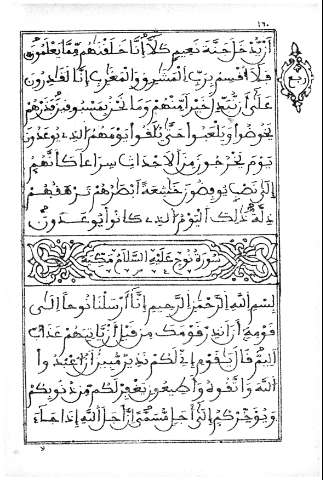 ١٦٠
أن يدخل جنة نعيم كلا إنا خلقنهم مما يعلمون
ربع
فلا أقسم برب المشرق والمغرب إنا لقادرون
على أن نبدل خيرا منهم وما نحن بمسبوقين فذرهم
يخوضوا ويلعبوا حتى يلقوا يومهم الذي يوعدون
يوم يخرجون من الاجداث سراعا كأنهم
إلى نصب يوفضون خشعة أبصرهم ترهقهم
ذلة ذلك اليوم الذي كانوا يوعدون
سورة نوح عليه السلام مكية
بسم الله الرحمن الرحيم إنا أرسلنا نوحا إلى
قومه أن أنذر قومك من قبل أن يأتيهم عذاب
أليم قال يقوم إني لكم نذير مبين أن اعبدوا
الله واتقوه وأطيعون يغفر لكم من ذنوبكم
ويؤخركم إلى أجل مسمى إن أجل الله إذا جاء
لا